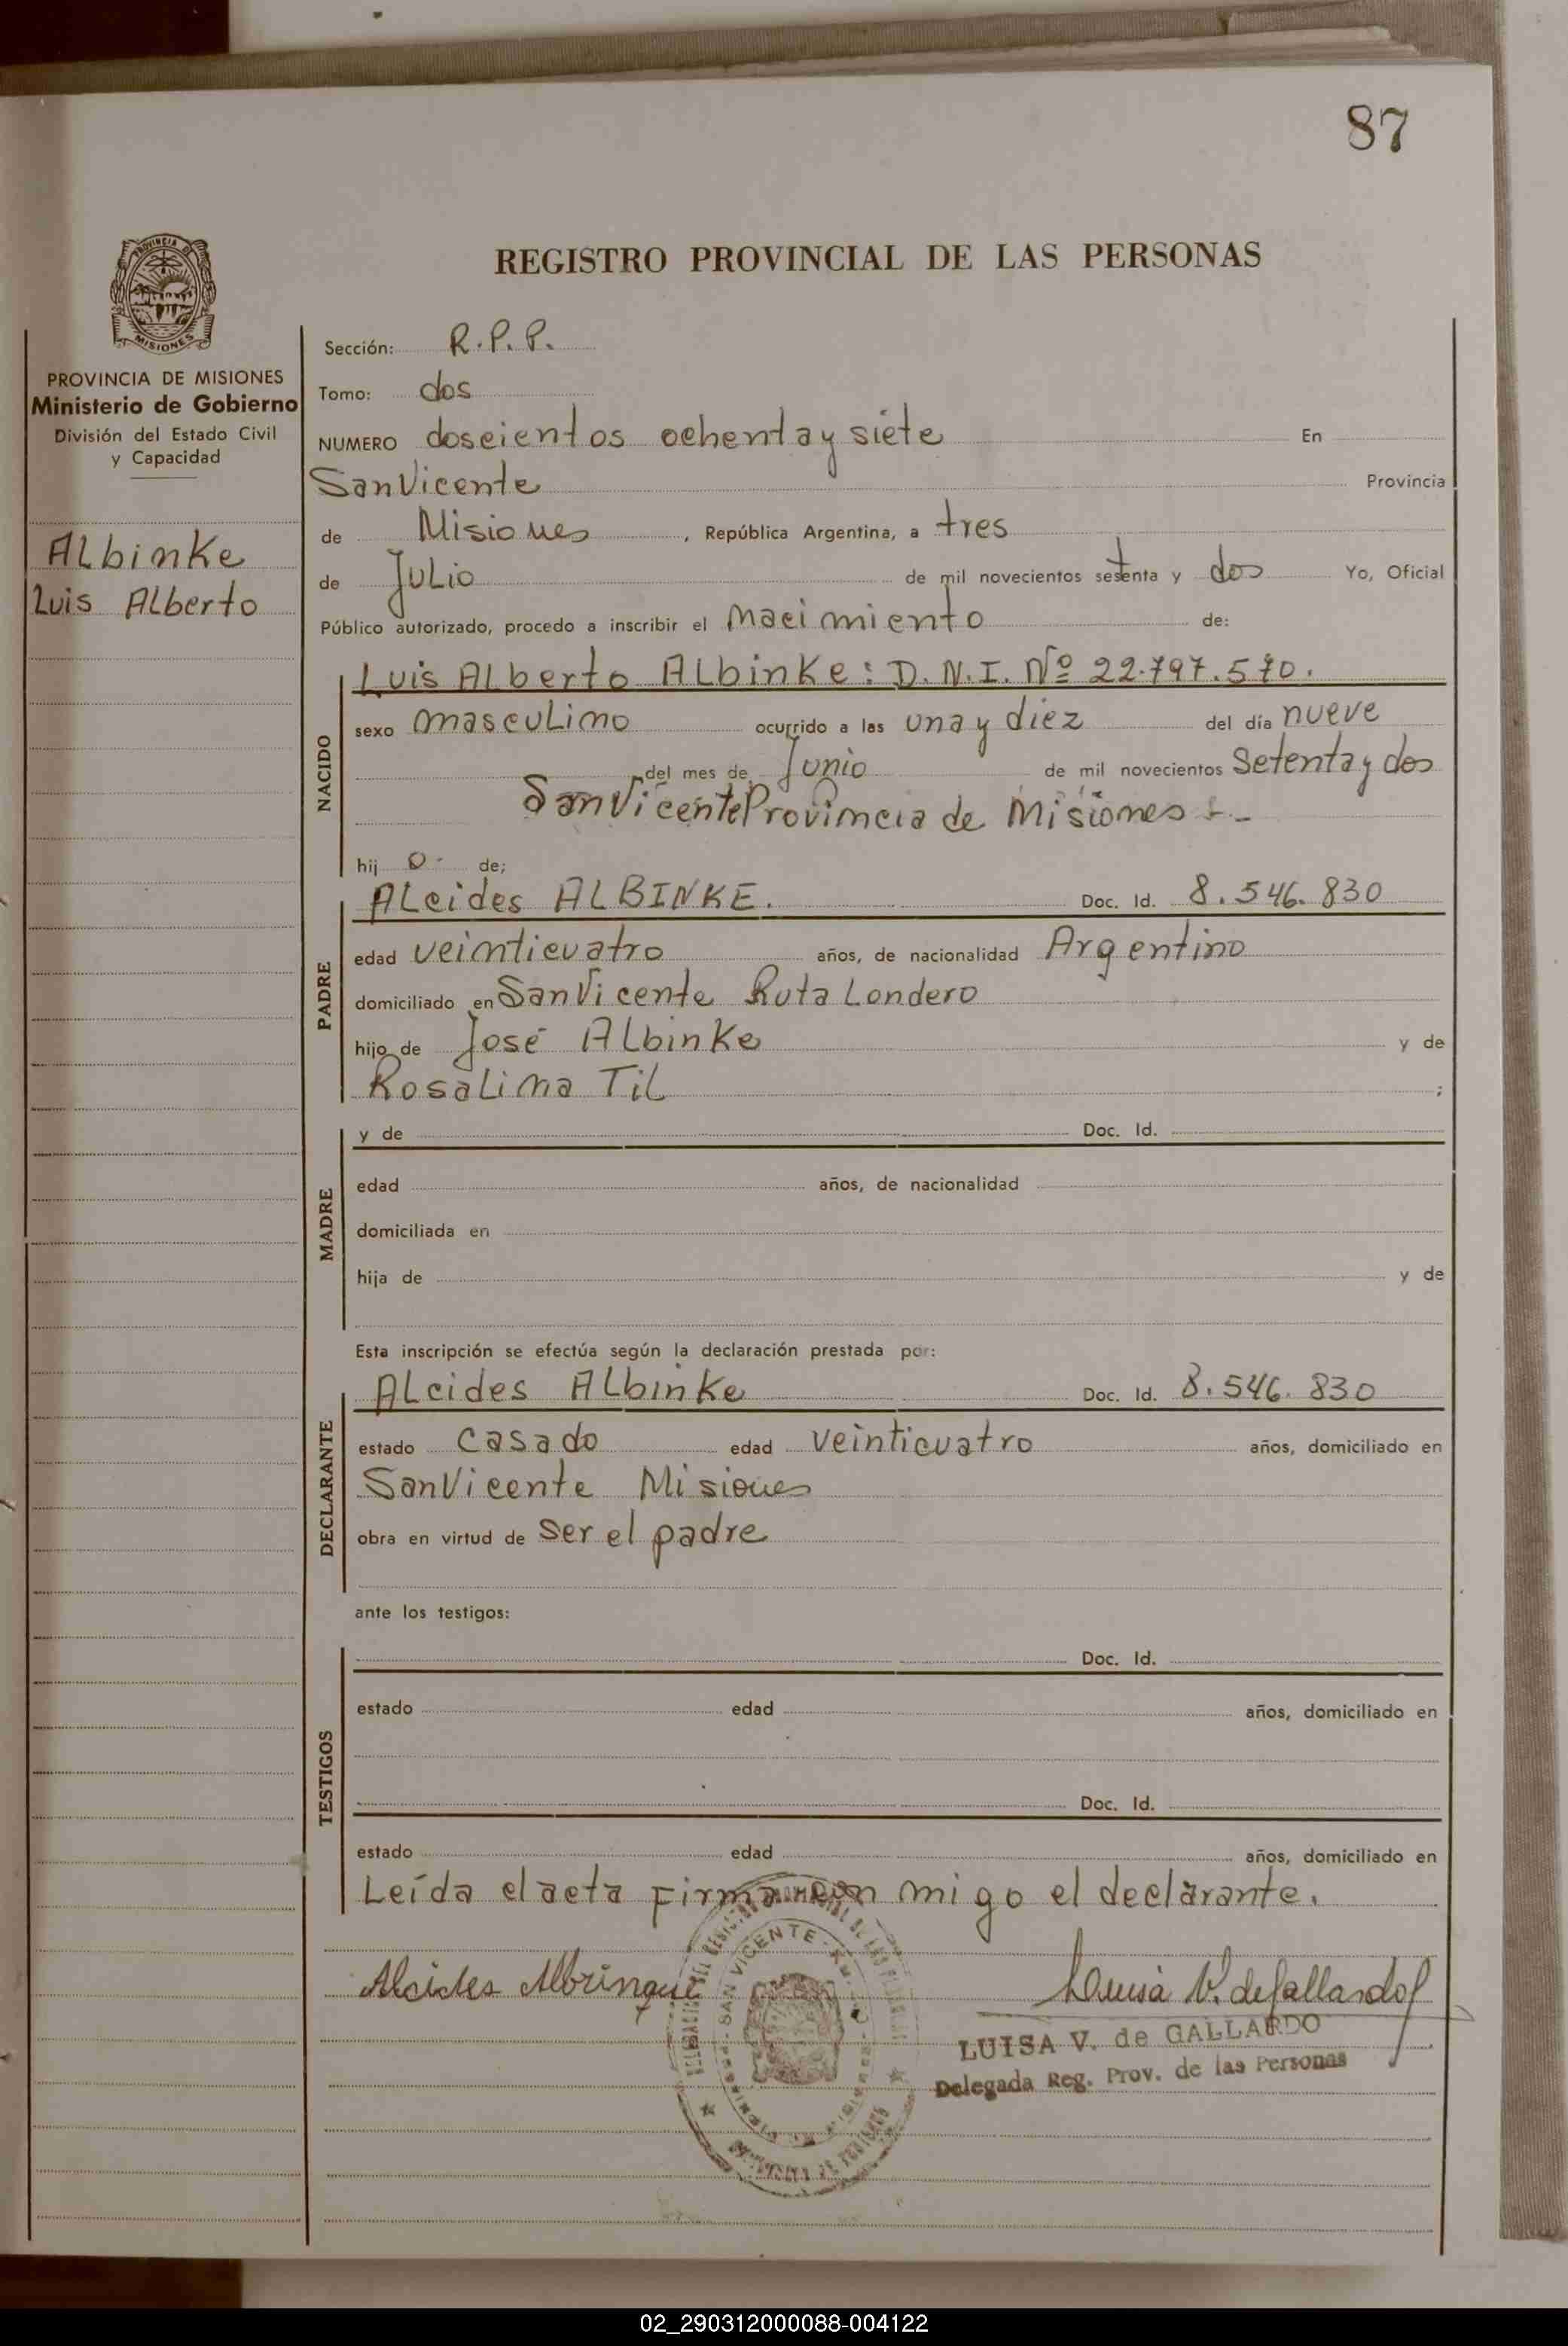 87
REGISTRO PROVINCIAL DE LAS PERSONAS
PROVINCIA DE MISIONES
Ministerio de Gobierno
División del Estado Civil
y Capacidad
Albinke
Luis Alberto
Sección: R.P.P.
Tomo: dos
NUMERO doscientos ochenta y siete En
San Vicente Provincia
de Misiones, República Argentina, a tres
de Julio de mil novecientos setenta y dos Yo, Oficial
Público autorizado, procedo a inscribir el Nacimiento de:
NACIDO
Luis Alberto Albinke: D.N.I. Nº 22.797.570.
sexo masculino ocurrido a las una y diez del día nueve
del mes de Junio de mil novecientos setenta y dos
San Vicente Provincia de Misiones
hij o- de;
PADRE
Alcides ALBINKE. Doc. Id. 8.546.830
edad veinticuatro años, de nacionalidad Argentino
domiciliado en San Vicente Ruta Londero
hijo de José Albinke y de
Rosalina Til ;
MADRE
y de Doc. Id.
edad años, de nacionalidad
domiciliada en
hija de y de
Esta inscripción se efectúa según la declaración prestada por:
DECLARANTE
Alcides Albinke Doc. Id. 8.546.830
estado casado edad veinticuatro años, domiciliado en
San Vicente Misiones
obra en virtud de ser el padre
ante los testigos:
TESTIGOS
Doc. Id.
estado edad años, domiciliado en
Doc. Id.
estado edad años, domiciliado en
Leída el acta firma con migo el declarante.
Alcides Luisa V. de Gallardo
LUISA V. de GALLARDO
Delegada Reg. Prov. de las Personas
SAN VICENTE
02_290312000088-004122